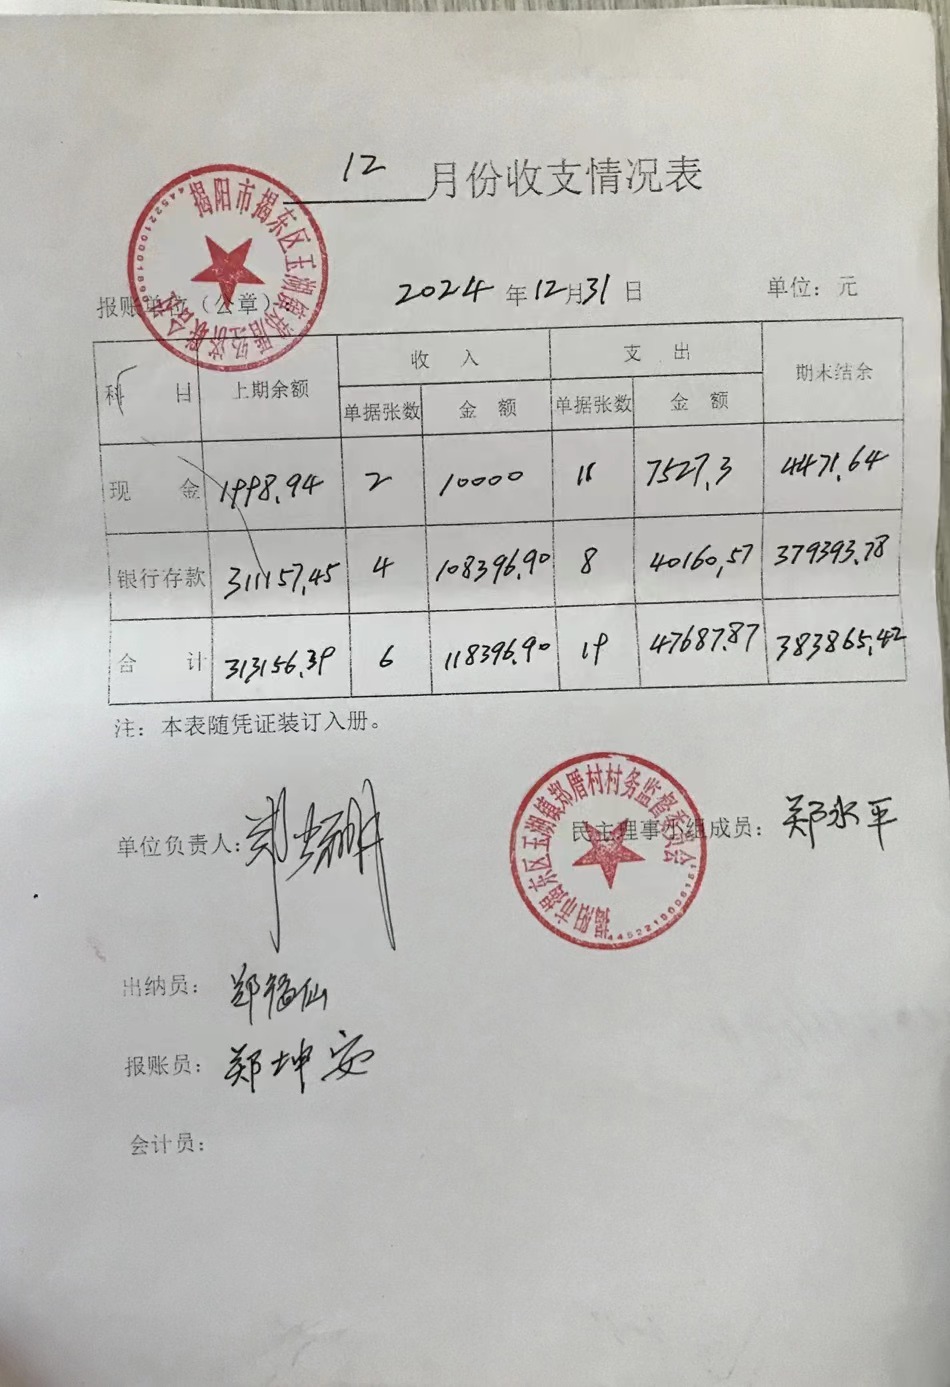 12 月份收支情况表
揭阳市揭东区玉湖镇郑厝经济联合社
报账单位（公章）： 2024 年 12 月 31 日 单位：元
科 目 上期余额 收 入 支 出 期末结余
单据张数 金 额 单据张数 金 额
现 金 1998.94 2 10000 11 7527.3 4471.64
银行存款 311157.45 4 108396.90 8 40160.57 379393.78
合 计 313156.39 6 118396.90 19 47687.87 383865.42
注：本表随凭证装订入册。
揭阳市揭东区玉湖镇郑厝村村务监督委员会
单位负责人：郑 民主理事小组成员：郑永平
出纳员：郑福仙
报账员：郑坤安
会计员：